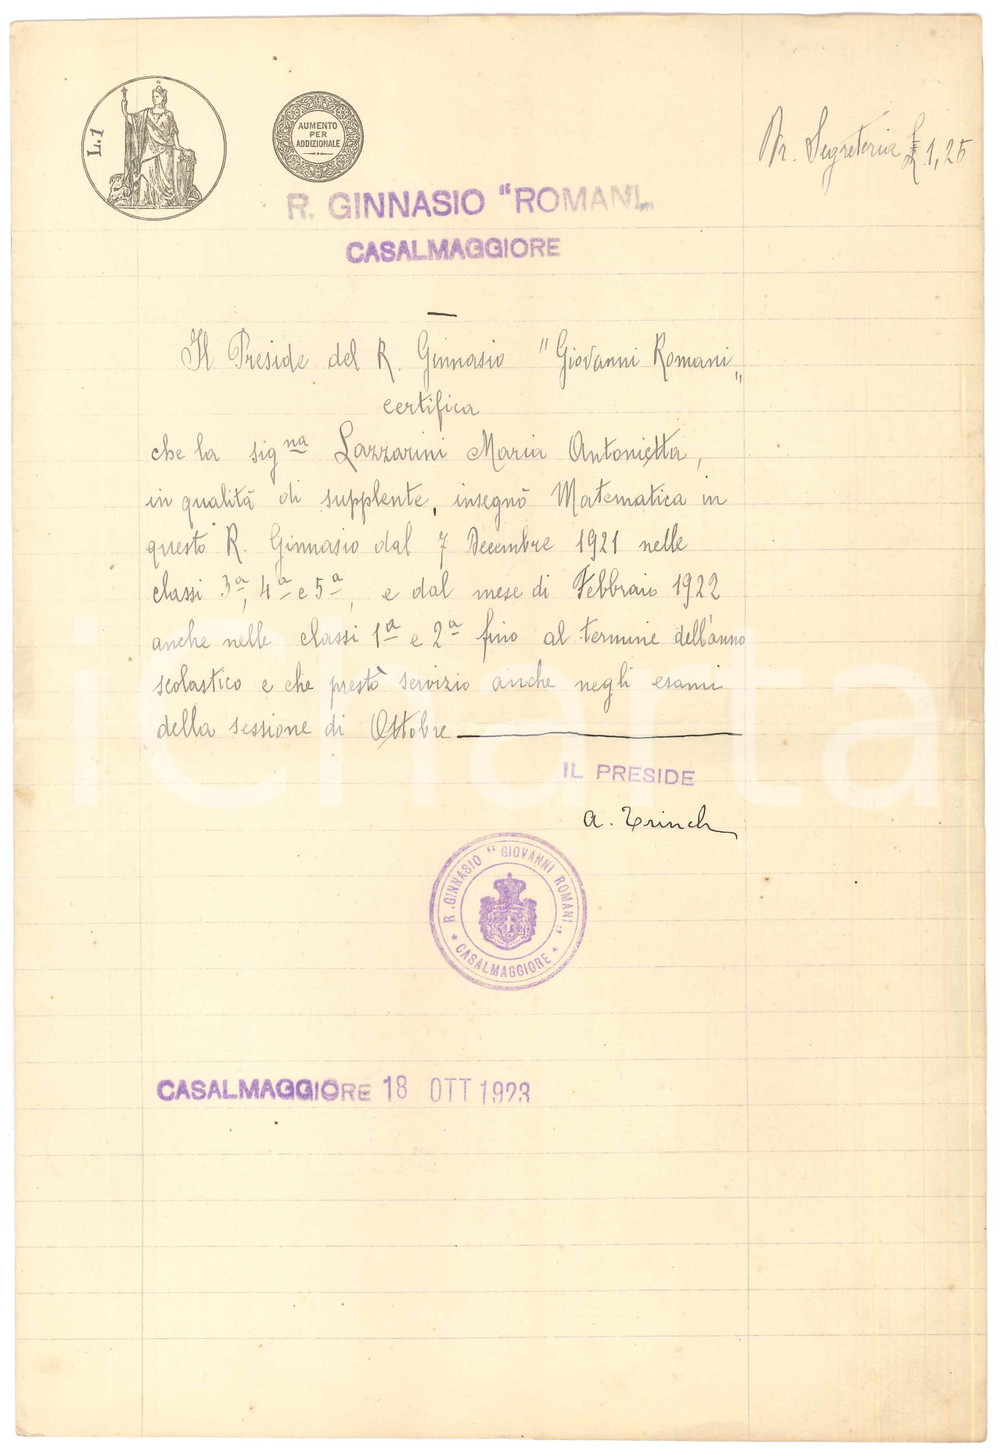 L.1
AUMENTO
PER
ADDIZIONALE
Dr. Segreteria £ 1,25
R. GINNASIO "ROMANI„
CASALMAGGIORE
Il Preside del R. Ginnasio "Giovanni Romani„
certifica
che la sigⁿᵃ Lazzarini Maria Antonietta,
in qualità di supplente, insegnò Matematica in
questo R. Ginnasio dal 7 Decembre 1921 nelle
classi 3ª, 4ª e 5ª, e dal mese di Febbraio 1922
anche nelle classi 1ª e 2ª fino al termine dell'anno
scolastico e che prestò servizio anche negli esami
della sessione di Ottobre
IL PRESIDE
A. Trinch
R. GINNASIO "GIOVANNI ROMANI"
* CASALMAGGIORE *
CASALMAGGIORE 18 OTT 1923
iCharta